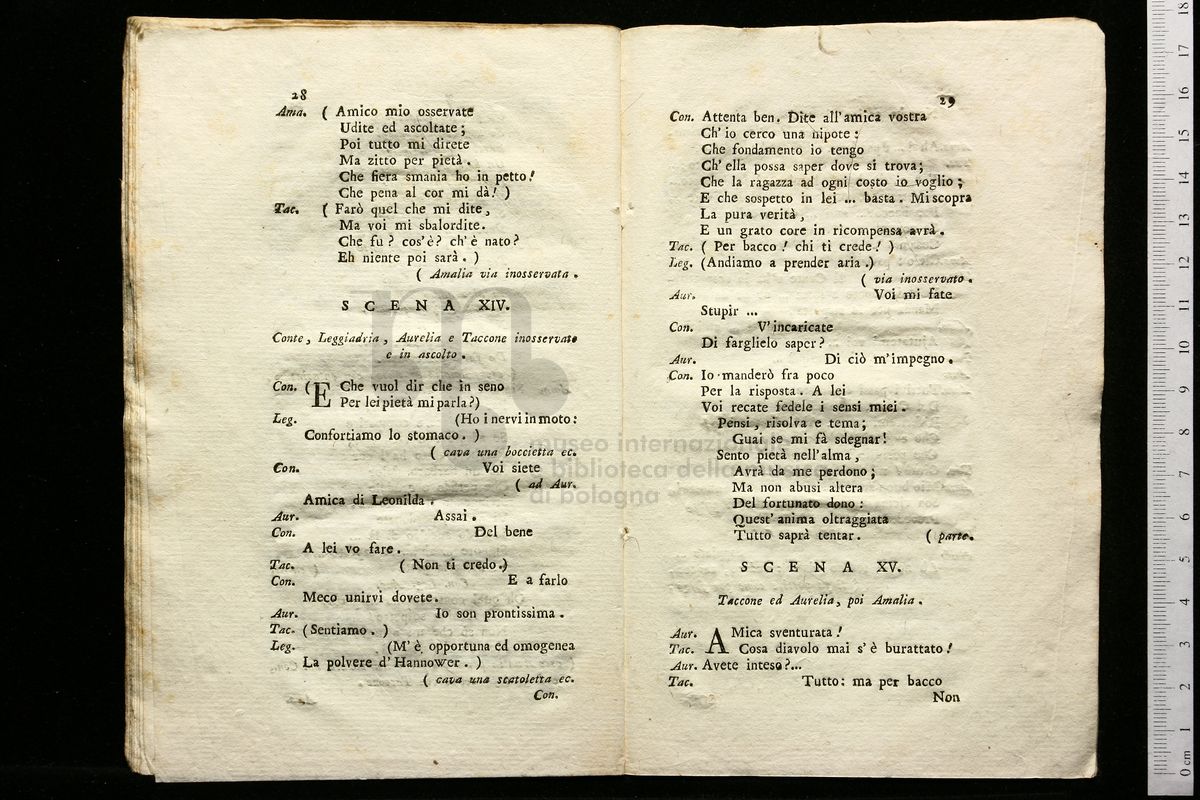 28
Ama. ( Amico mio osservate
Udite ed ascoltate;
Poi tutto mi direte
Ma zitto per pietà.
Che fiera smania ho in petto!
Che pena al cor mi dà! )
Tac. ( Farò quel che mi dite,
Ma voi mi sbalordite.
Che fu? cos'è? ch'è nato?
Eh niente poi sarà. )
( Amalia via inosservata.
SCENA XIV.
Conte, Leggiadria, Aurelia e Taccone inosservato
e in ascolto.
Con. (E Che vuol dir che in seno
Per lei pietà mi parla?)
Leg. (Ho i nervi in moto:
Confortiamo lo stomaco. )
( cava una boccietta ec.
Con. Voi siete
( ad Aur.
Amica di Leonilda.
Aur. Assai.
Con. Del bene
A lei vo fare.
Tac. ( Non ti credo.)
Con. E a farlo
Meco unirvi dovete.
Aur. Io son prontissima.
Tac. (Sentiamo. )
Leg. (M'è opportuna ed omogenea
La polvere d'Hannower. )
( cava una scatoletta ec.
Con.
29
Con. Attenta ben. Dite all'amica vostra
Ch'io cerco una nipote:
Che fondamento io tengo
Ch'ella possa saper dove si trova;
Che la ragazza ad ogni costo io voglio;
E che sospetto in lei ... basta. Mi scopra
La pura verità,
E un grato core in ricompensa avrà.
Tac. ( Per bacco! chi ti crede! )
Leg. (Andiamo a prender aria.)
( via inosservato.
Aur. Voi mi fate
Stupir ...
Con. V'incaricate
Di farglielo saper?
Aur. Di ciò m'impegno.
Con. Io manderò fra poco
Per la risposta. A lei
Voi recate fedele i sensi miei.
Pensi, risolva e tema;
Guai se mi fà sdegnar!
Sento pietà nell'alma,
Avrà da me perdono;
Ma non abusi altera
Del fortunato dono:
Quest'anima oltraggiata
Tutto saprà tentar. ( parte.
SCENA XV.
Taccone ed Aurelia, poi Amalia.
Aur. AMica sventurata!
Tac. Cosa diavolo mai s'è burattato!
Aur. Avete inteso?...
Tac. Tutto: ma per bacco
Non
museo internazion
biblioteca della
di bologna
0 cm 1 2 3 4 5 6 7 8 9 10 11 12 13 14 15 16 17 18